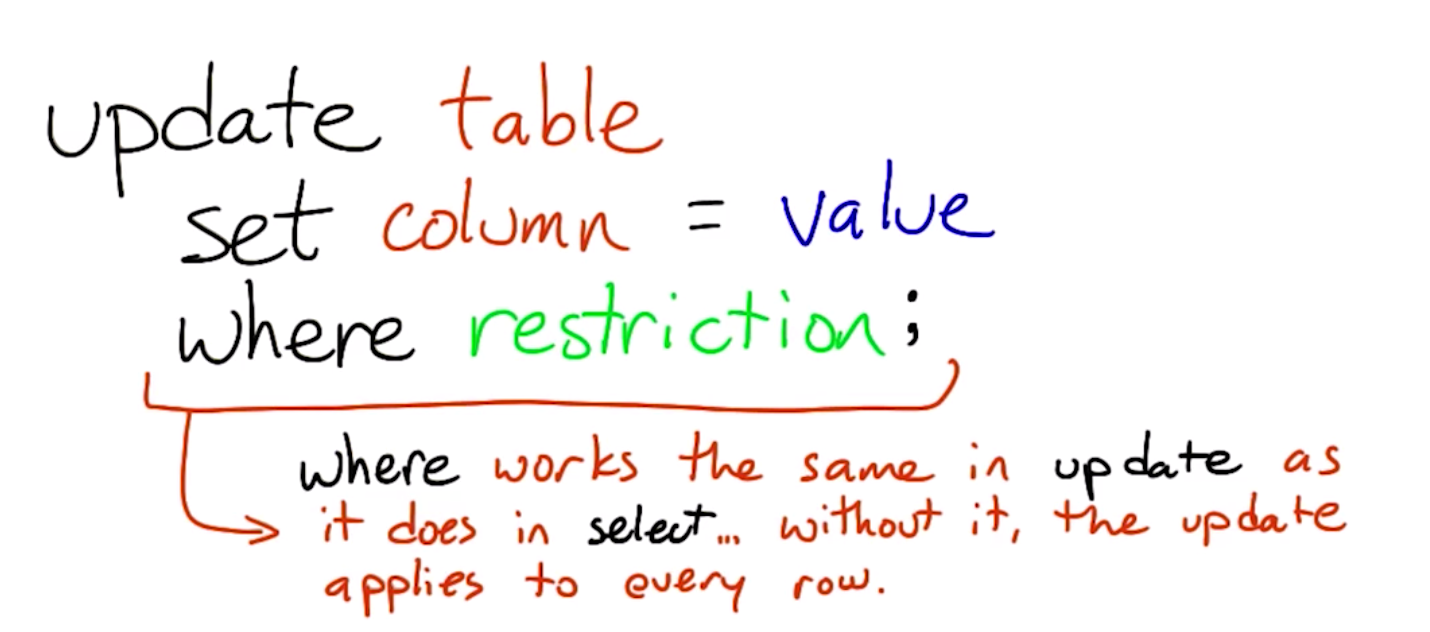 update table
set column = value
where restriction;
where works the same in update as
it does in select... without it, the update
applies to every row.